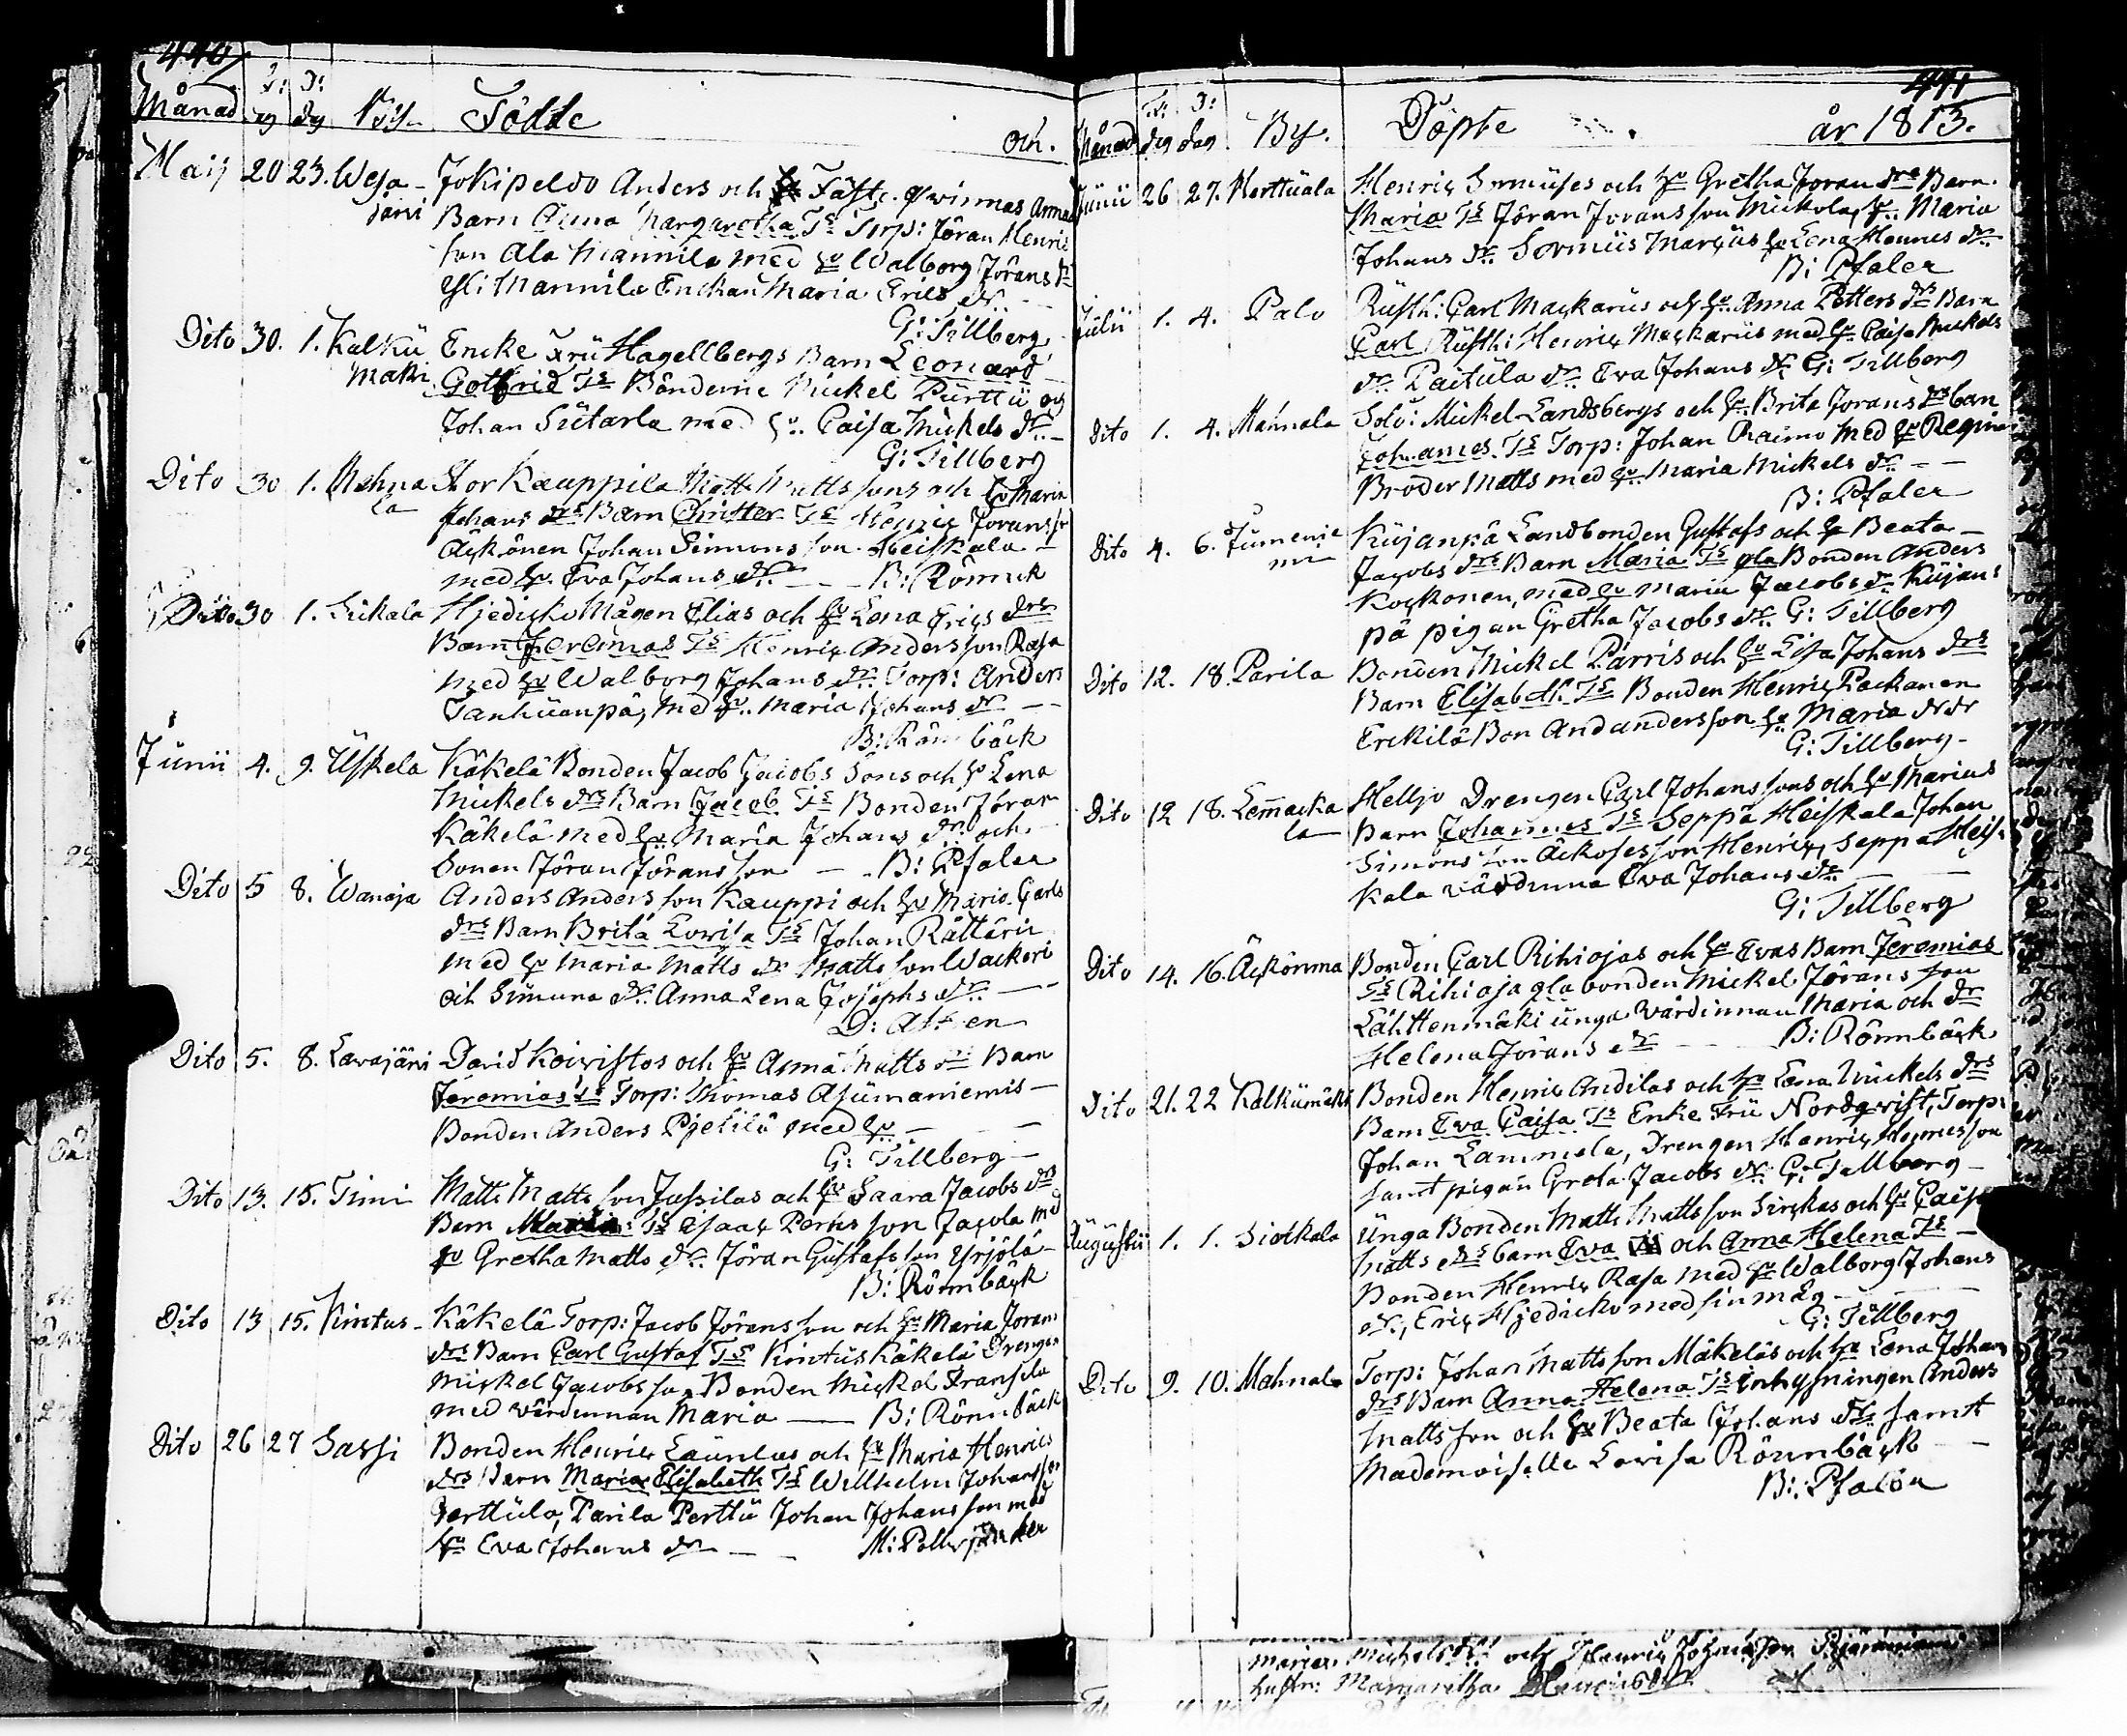 440
Månad dag D: dag By Födde och.
Maij 20 23. Wesa- Jokipeldo Anders och Fäste qwinnas Anna
järvi Barn Anna Margaretha Ts Torp: Jöran Henric
son Ala Mannila med hu Walborg Jörans dr
Yli Mannila Enckan Maria Erics dr
G: Tillberg
Dito 30. 1. Kalkü Encke Frü Hagellbergs Barn Leonard
mäki Gotfrid Ts Bönderne Mickel Pürttü og
Johan Sütarla med hu. Caisa Mickels dr
G: Tillberg
Dito 30 1. Mahna Stor Kauppila Matts Matts sons och hu Maria
la Johans drs Barn Christer Ts Henric Joransson
Äckönen Johan Simmons son Heiskala
med hu. Eva Johans dr B: Rönnck
Dito 30 1. Lickala Hjedicko Mågen Elias och hu Lena Erics drs
Barn Jeremias Ts Henric Andersson Rasa
med hu Walborg Johans dr. Torp: Anders
Tanhüanpä, med hu. Maria Johans dr
B: Rönnbäck
Junii 4. 9. Üskela Käkelä Bonden Jacob Jacobs Sons och hu Lena
Mickels drs Barn Jacob Ts Bonden Jöran
Käkelä med hu Maria Johans dr och
Sonen Jöran Jöransson B: Pfaler
Dito 5 8. Wanaja Anders Anders son Kauppi och hu Maria Carls
drs Barn Brita Lovisa Ts Johan Rättäri
med hu Maria Matts dr Matts son Wackeri
och Simuna dr. Anna Lena Josephs dr
D: Assen
Dito 5. 8. Lavajärvi David Koivistos och hu Anna Matts drs Barn
Jeremias Ts Torp: Thomas Asümaniemis
Bonden Anders Pjetilä med hu
G: Tillberg
Dito 13. 15. Timi Matts Matts son Jussilas och hu Saara Jacobs drs
Barn Maria: Ts Isaac Perus son Jacola med
hu Gretha Matts dr. Jöran Gustafsson Yrjölä
B: Rönnbäck
Dito 13 15. Kintus- Käkelä Torp: Jacob Jöransson och hu Maria Joran
drs Barn Carl Gustaf Ts Kintüs Käkelä Drengen
Mickel Jacobsson Bonden Mickel Fransila
med värdinnan Maria B: Rönnbäck
Dito 26 27 Sassi Bonden Henric Laünlas och hu Maria Henrics
drs Barn Maria Elisabeth Ts Willhelm Johansson
Perttüla, Parila Perttü Johan Johansson med
hu Eva Johans dr M: Pollwiander
441
Månad dag D: dag By. Döpte år 1813.
Junii 26 27. Herttüala Henric Sormüses och hu Gretha Joran drs Barn.
Maria Ts Jöran Joransson Mickola, hu. Maria
Johans dr. Sormüs Marcüs hu Lena Hennes dr
B: Pfaler
Julii 1. 4. Palo Rüsth: Carl Mackarüs och hu. Anna Petters drs Barn
Carl Rüsth: Henric Mackarüs med hu. Caisa Mickels
dr. Paitüla dr. Eva Johans dr G: Tillberg
Dito 1. 4. Mahnala Sold: Mickel Landsbergs och hu. Brita Jorans drs barn
Johannes. Ts Torp: Johan Raimo med hu Regina
Broder Matts med hu. Maria Mickels dr
B: Pfaler
Dito 4. 6. Tümenie Küjanpä Landbonden Gustafs och hu Beata
mi Jacobs drs Barn Maria Ts gla Bonden Anders
Kockonen, med hu Maria Jacobs dr Küjan:
pä pigan Gretha Jacobs dr. G: Tillberg
Dito 12. 18. Parila Bonden Mickel Parris och hu Lisa Johans drs
Barn Elisabeth. Ts Bonden Henric Packanen
Erckilä Bon And andersson hu Maria dr dr
G: Tillberg
Dito 12 18. Lemacka Helljo Drengen Carl Johanssons och hu Marias
la Barn Johannes Ts Seppä Heiskala Johan
Simons son Äckosesson Henric, Seppä Heis:
kala värdinna Eva Johans dr
G: Tillberg
Dito 14. 16. Äckönma Bonden Carl Rihiojas och hu Evas Barn Jeremias
Ts Rihioja gla bonden Mickel Jörans son
Lähttenmäki ünga värdinnan Maria och dr
Helena Jörans dr B: Rönnbäck
Dito 21. 22 Kalkümäki Bonden Henric Andilas och hu Lena Mickels drs
Barn Eva Caisa Ts Enke Frü Nordqvist, Torp:
Johan Lammela, Drengen Henric Henricsson
samt pigan Greta Jacobs dr. G: Tillberg
Augustii 1. 1. Siockala Ünga Bonden Matts Matts son Sirckas och hu Caisa
Matts drs barn Eva och Anna Helena Ts
Bonden Henric Rasa med hu Walborg Johans
dr, Eric Hjedicko med sin måg
G: Tillberg
Dito 9. 10. Mahnala Torp: Johan Matts son Mäkeläs och hu Lena Johans
drs Barn Anna Helena Ts Inhysningen Anders
Matts son och hu Beata Johans drs samt
Mademoiselle Lovisa Rönnbäck
B: Pfaler
Maria Michelsdr och Henric Johansson
hustr: Margaretha Henricsdr